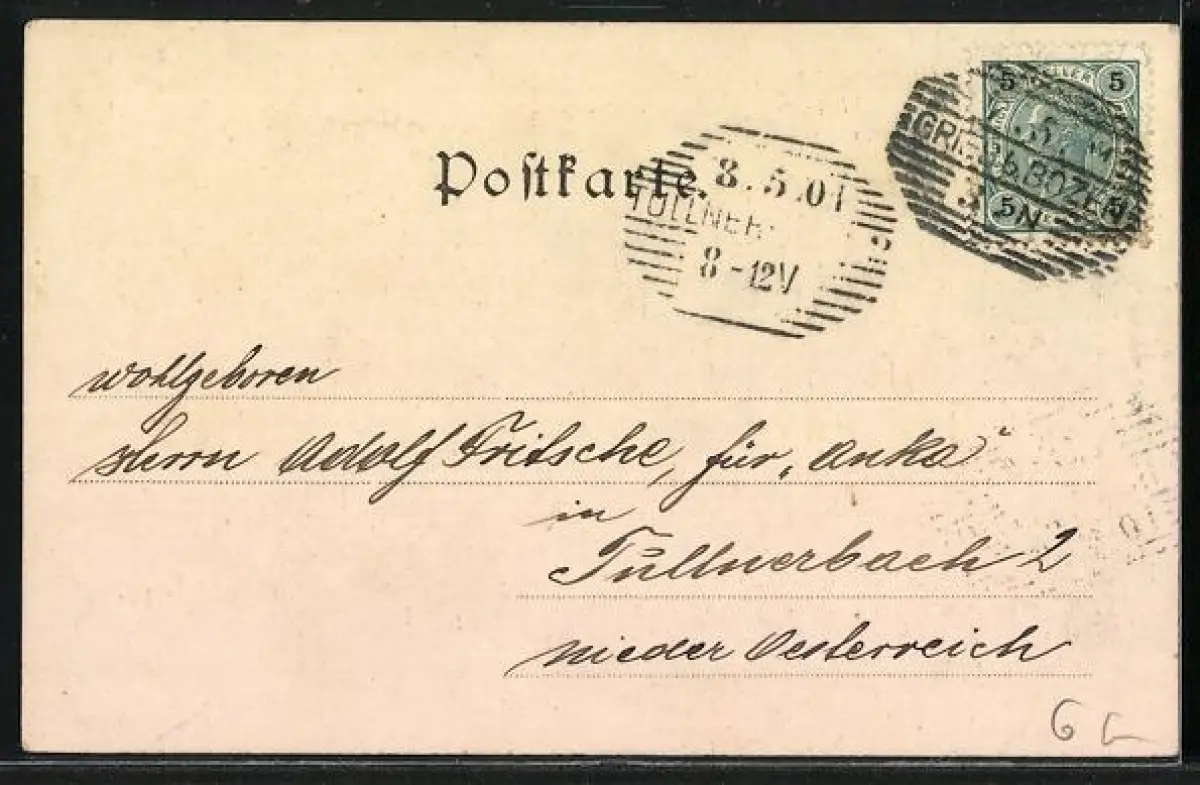 5 HELLER 5
GRIES b. BOZEN
5 N 5
Postkarte.
8.5.01
TULLNER
8-12V
Wohlgeboren
Herrn Adolf Fritsche, für „Anka“
in
Tullnerbach 2
Nieder Oesterreich
G